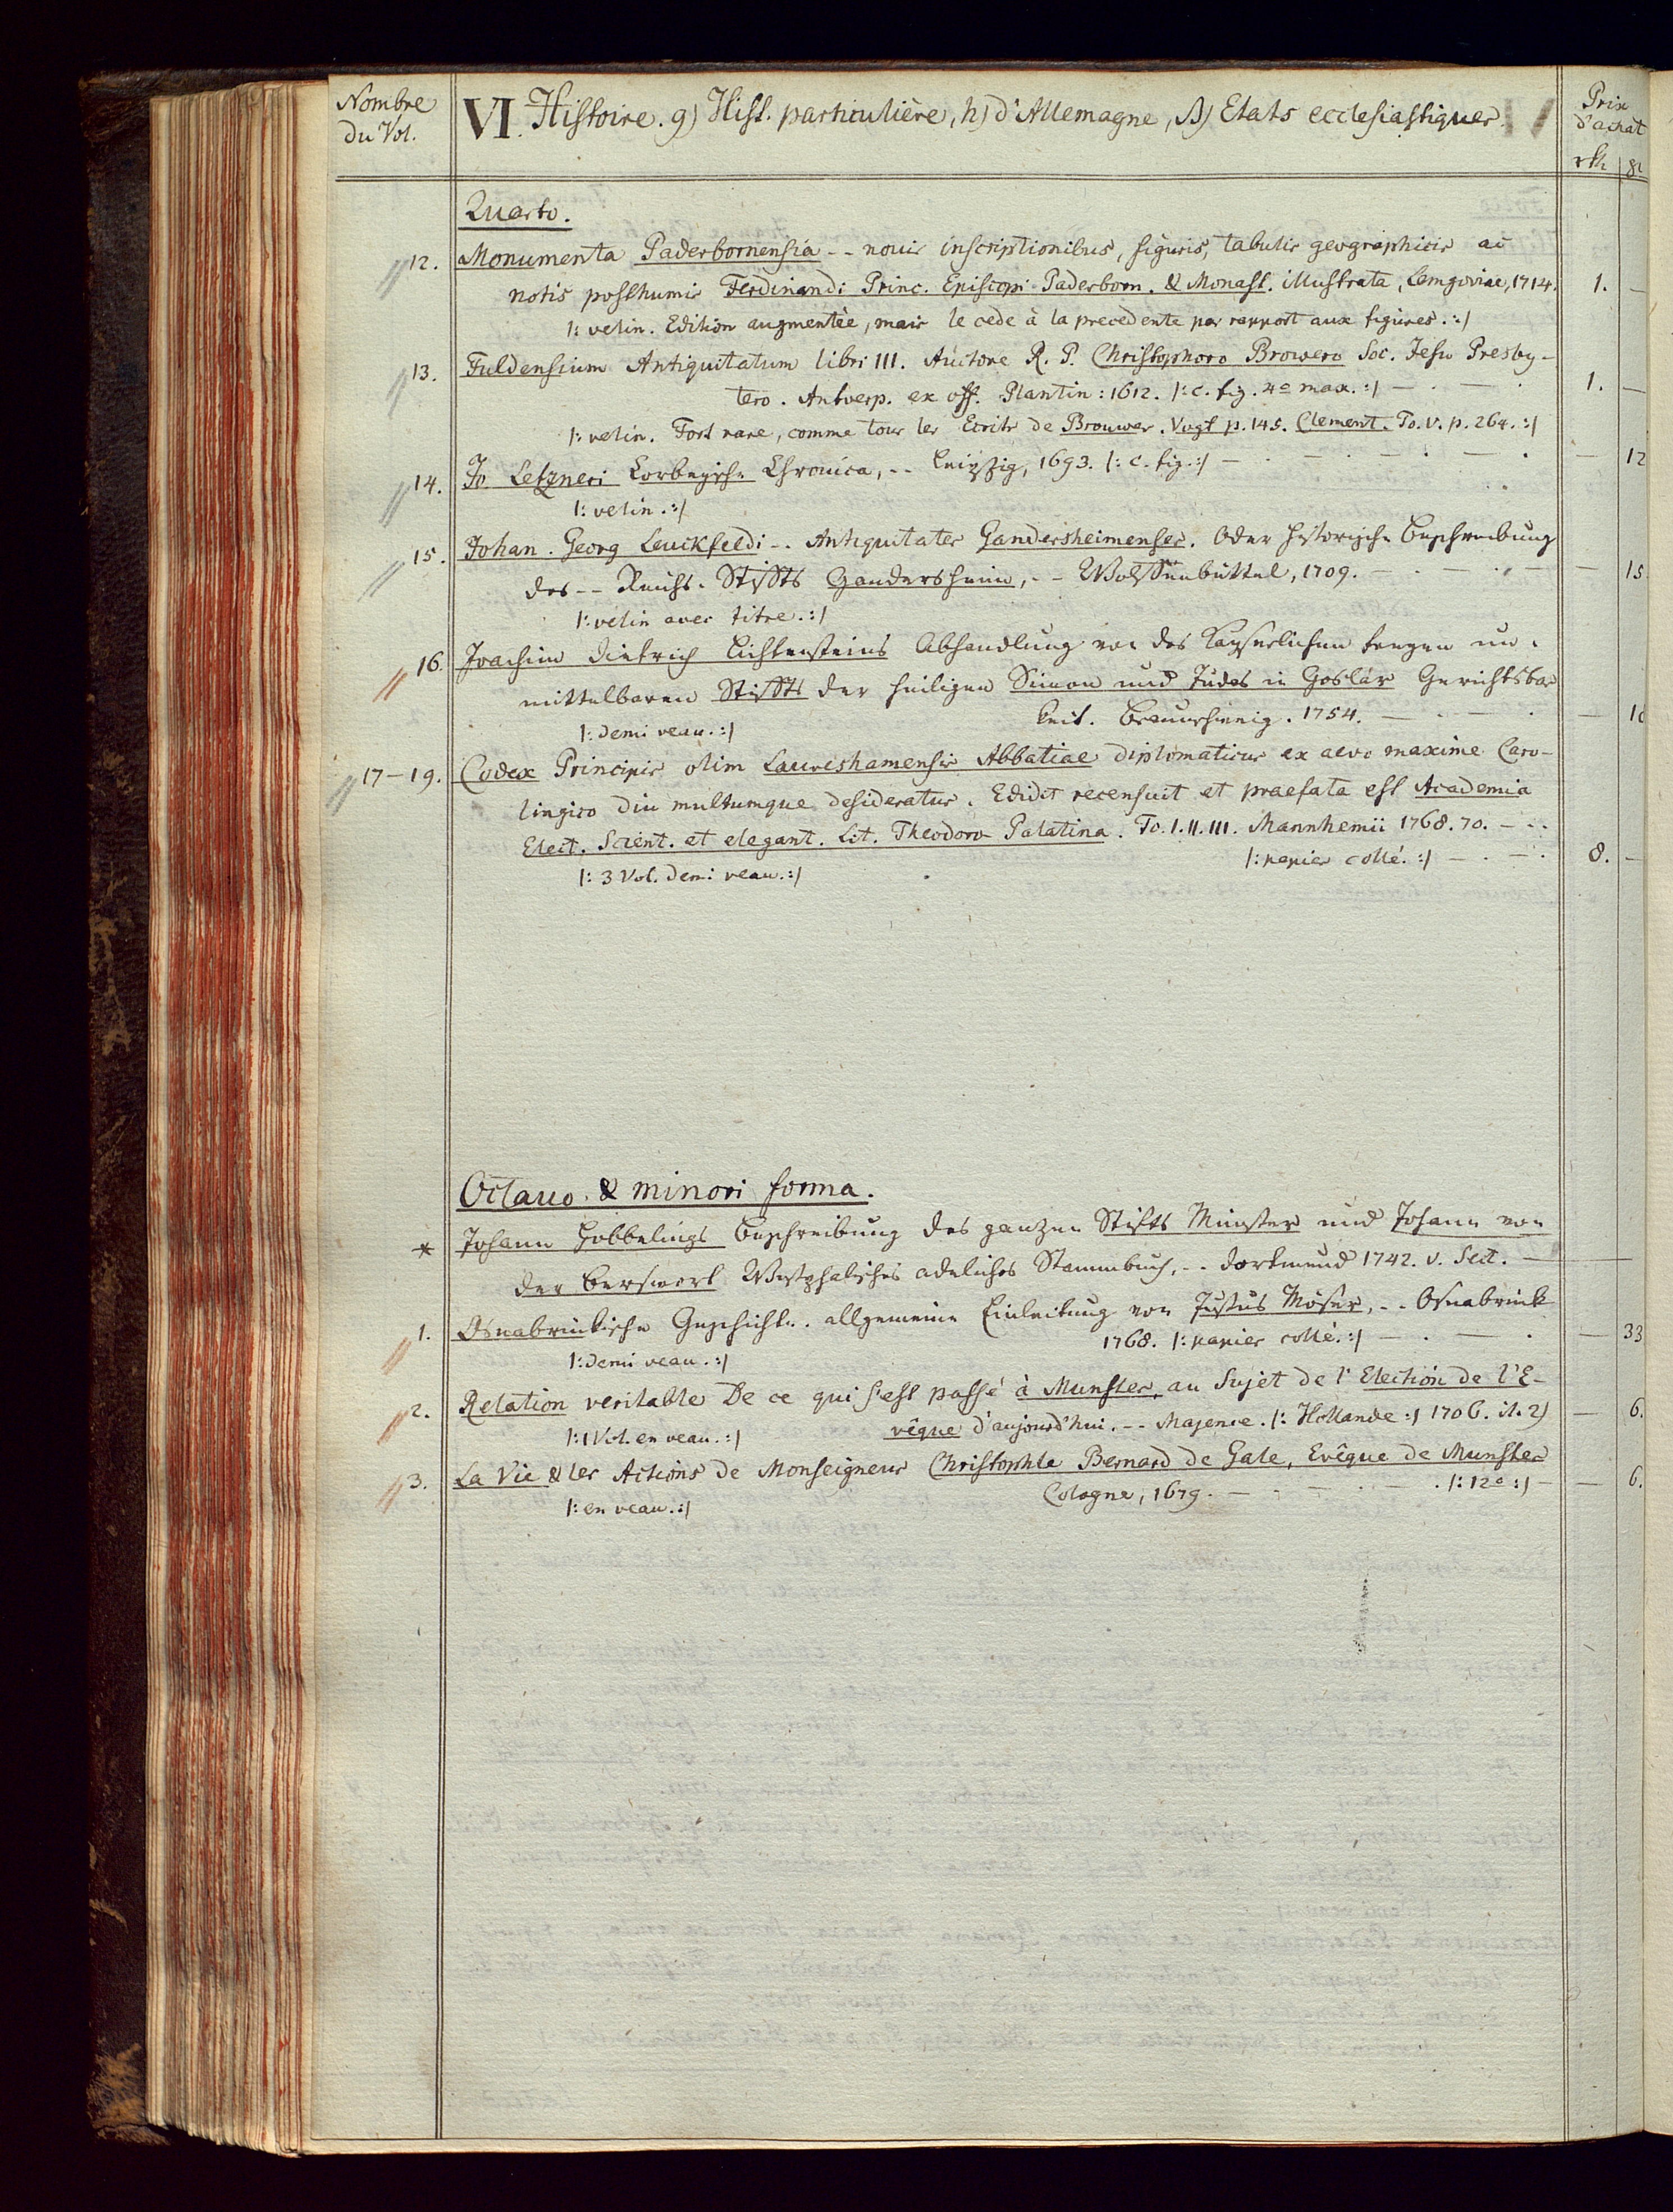 Nombre
du Vol.
VI. Histoire. g) Hist. particulière, h) d'Allemagne, β) Etats ecclesiastiques
Prix
d'achat
rth gr
Quarto.
12. Monumenta Paderbornensia -- novis inscriptionibus, figuris, tabulis geographicis ac
notis posthumis Ferdinandi Princ. Episcopi Paderborn. & Monast. illustrata, Lemgoviae, 1714. 1. —
|: velin. Edition augmentée, mais le cede à la precedente par rapport aux figures. :|
13. Fuldensium Antiquitatum libri III. Auctore R. P. Christophoro Browero Soc. Jesu Presby-
tero. Antverp. ex off. Plantin: 1612. |: c. fig. 4° max. :| — . — . 1. —
|: velin. Fort rare, comme tous les Ecrits de Brouwer. Vogt p. 145. Clement. To. V. p. 264. :|
14. Jo. Letzneri Corbeysche Chronica, -- Leipzig, 1693. |: c. fig. :| — 12
|: velin. :|
15. Johan. Georg Leuckfeldi -- Antiquitates Gandersheimenses. Oder historische Beschreibung
des -- Reichs-Stiffts Gandersheim, -- Wolffenbüttel, 1709. — 15
|: velin avec titre. :|
16. Joachim Dietrich Lichtensteins Abhandlung von des Kayserlichen freyen un-
mittelbaren Stiffts der heiligen Simon und Judas in Goslar Gerichtsbar
keit. Braunschweig. 1754. —
|: demi veau. :|
17-19. Codex Principis olim Laureshamensis Abbatiae diplomaticus ex aevo maxime Caro-
lingico diu multumque desideratus. Edidit recensuit et praefata est Academia
Elect. Scient. et elegant. Lit. Theodoro-Palatina. To. I. II. III. Mannhemii 1768. 70. —
|: papier collé. :| — . — . 8. —
|: 3 Vol. demi veau. :|
Octavo & minori forma.
* Johann Hobbelings Beschreibung des ganzen Stifts Münster und Johann von
der Berswort Westphalisches adeliches Stammbuch, -- Dortmund 1742. v. Sect. —
1. Osnabrückische Geschichte. allgemeine Einleitung von Justus Möser, -- Osnabrück
1768. |: papier collé. :| — . — . — 33
|: demi veau. :|
2. Relation veritable De ce qui s'est passé à Munster, au Sujet de l'Election de l'E-
vêque d'aujourd'hui. -- Majence. |: Hollande :| 1706. it. 2) — 6.
|: 1 Vol. en veau. :|
3. La Vie & les Actions de Monseigneur Christophle Bernard de Gale, Evêque de Munster
Cologne, 1679. — . |: 12° :| — 6.
|: en veau. :|